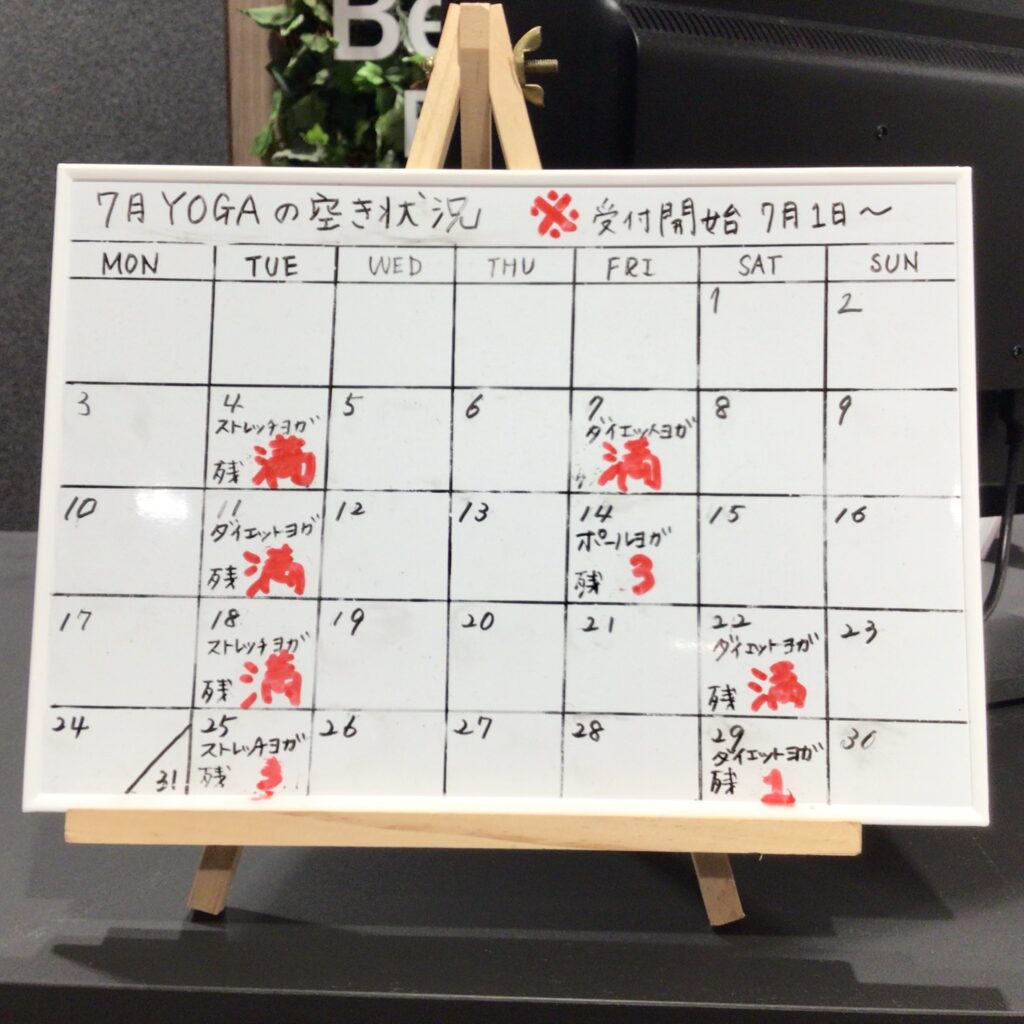 Be
7月 YOGAの空き状況 ※ 受付開始 7月1日〜
MON TUE WED THU FRI SAT SUN
1 2
3 4 5 6 7 8 9
ストレッチヨガ ダイエットヨガ
残 満 満
10 11 12 13 14 15 16
ダイエットヨガ ポールヨガ
残 満 残 3
17 18 19 20 21 22 23
ストレッチヨガ ダイエットヨガ
残 満 残 満
24 25 26 27 28 29 30
ストレッチヨガ ダイエットヨガ
31 残 3 残 1